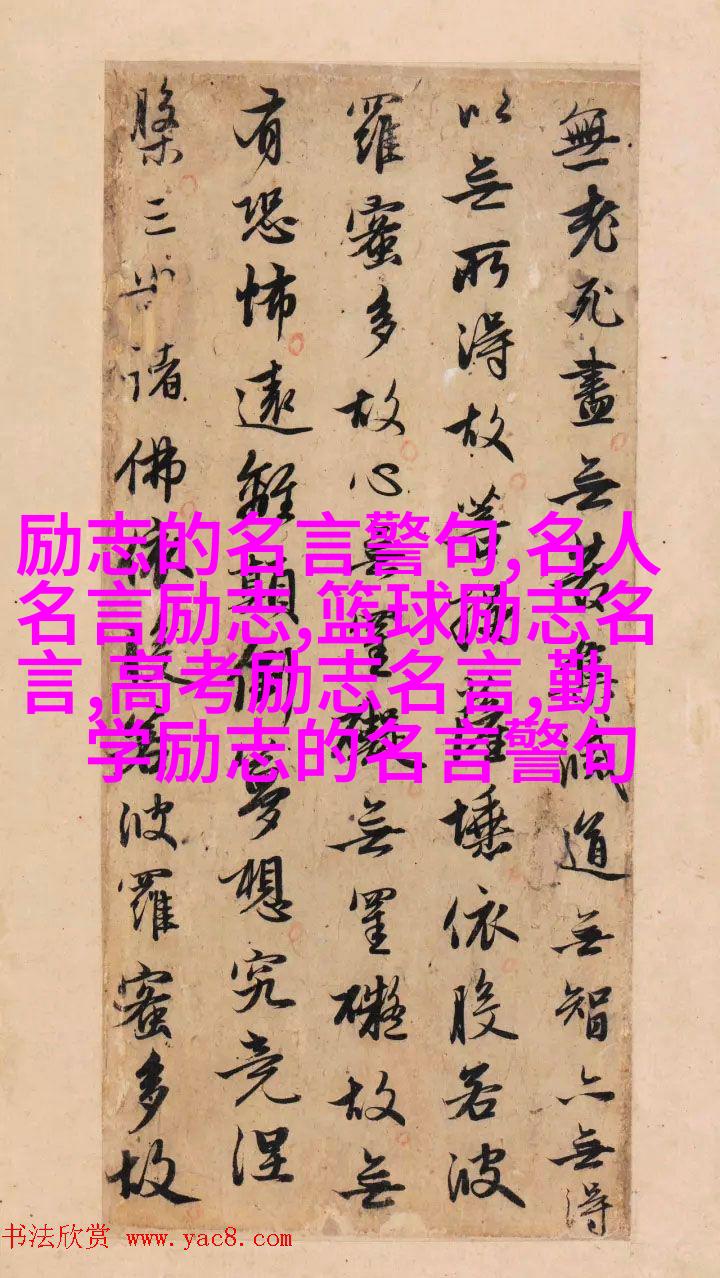 無老死盡無苦集滅道無智亦無得
以無所得故菩提薩埵依般若波
羅蜜多故心無罣礙無罣礙故無
有恐怖遠離顛倒夢想究竟涅
槃三世諸佛依般若波羅蜜多故
励志的名言警句,名人
名言励志,篮球励志名
言,高考励志名言,勤
学励志的名言警句
书法欣赏 www.yac8.com